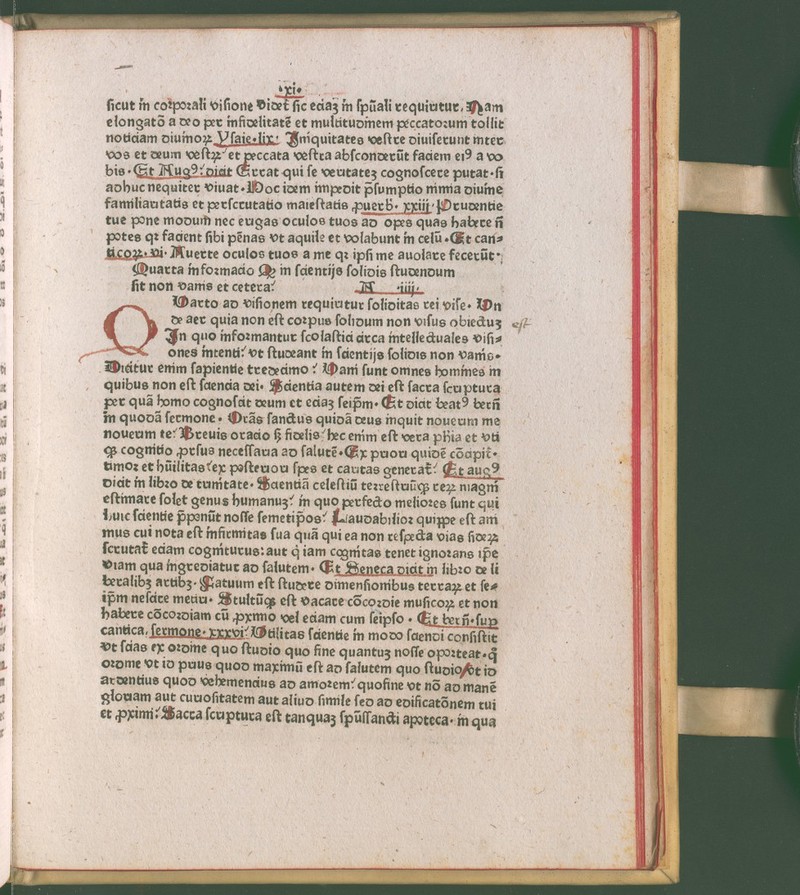 ·xi·
ſicut in coꝛpoꝛali viſione videt̄ ſic eciaꝫ in ſpūali requiritur. Nam
elongatō a deo per infidelitatē et multitudinem peccatorum tollit
noticiam diuinoꝝ Yſaie·lix· Iniquitates veſtre diuiſerunt inter
vos et deum veſtꝝ et peccata veſtra abſconderūt faciem eiꝰ a vo
bis·Et Augꝰ· dicit Errat qui ſe veritateꝫ cognoſcere putat·ſi
adhuc nequiter viuat·Hoc idem impedit p̄ſumptio nimia diuine
familiaritatis et perſcrutatio maieſtatis ꝓuerb· xxiij· Prudentie
tue pone modum nec erigas oculos tuos ad opes quas habere n̄
potes qꝛ facient ſibi pēnas vt aquile et volabunt in celū·Et can⸗
ticoꝝ·vi· Auerte oculos tuos a me qꝛ ipſi me auolare fecerūt·
Quarta informacio Ꝙ in ſcientijs ſolidis ſtudendum
ſit non vanis et cetera· A ·iiij·
QUarto ad viſionem requiritur ſoliditas rei viſe· Un
de aer quia non eſt coꝛpus ſolidum non viſus obiectuꝫ eſt
In quo informantur ſcolaſtici circa intellectuales viſi⸗
ones intenti· vt ſtudeant in ſcientijs ſolidis non vanis·
Dicitur enim ſapientie tredecimo · Vani ſunt omnes homines in
quibus non eſt ſciencia dei· Scientia autem dei eſt ſacra ſcriptura
per quā homo cognoſcit deum et eciaꝫ ſeip̄m·Et dicit beatꝰ bern̄
in quodā ſermone· Orās ſanctus quidā deus inquit nouerim me
nouerim te· Breuis oracio ſꝫ fidelis· hec enim eſt vera ph̄ia et vti
qꝫ cognitio ꝓrſus neceſſaria ad ſalutē·Ex priori quidē cōcipit·
timoꝛ et hūilitas· ex poſteriori ſpes et caritas generat̄· Et augꝰ
dicit in libro de trinitate·Scientiā celeſtiū terreſtriūqꝫ reꝝ magni
eſtimare ſolet genus humanuꝫ· in quo perfecto meliores ſunt qui
huic ſcientie p̄ponūt noſſe ſemetip̄os· Laudabilioꝛ quippe eſt ani
mus cui nota eſt infirmitas ſua quā qui ea non reſpecta vias ſideꝝ
ſcrutat̄ eciam cogniturus: aut q̇ iam cognitas tenet ignorans ip̄e
viam qua ingrediatur ad ſalutem· Et Seneca dicit in libro de li
beralibꝫ artibꝫ· Fatuum eſt ſtudere dimenſionibus terraꝝ et ſe⸗
ip̄m neſcire metiri· Stultūqꝫ eſt vacare cōcordie muſicoꝝ et non
habere cōcordiam cū ꝓximo vel eciam cum ſeipſo · Et bern̄·ſup
cantica· ſermone·xxxvi· Utilitas ſcientie in modo ſciendi conſiſtit
vt ſcias ex ordine quo ſtudio quo fine quantuꝫ noſſe oporteat·q̄
ordme vt id prius quod maximū eſt ad ſalutem quo ſtudio/vt id
ardentius quod vehemencius ad amorem· quofine vt nō ad manē
gloriam aut curioſitatem aut aliud ſimile ſed ad edificatōnem tui
et ꝓximi· Sacra ſcriptura eſt tanquaꝫ ſpūſſancti apoteca· in qua